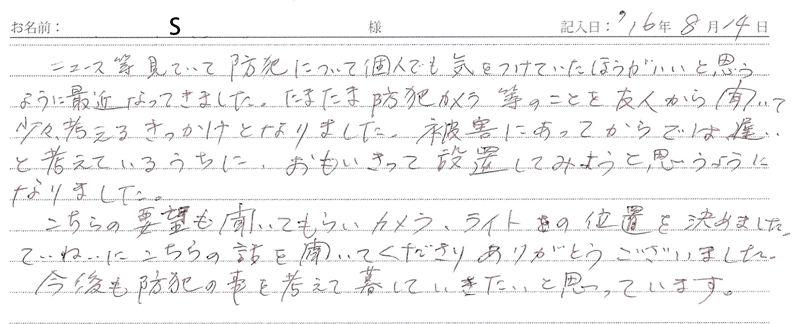 お名前: S 様 記入日: '16年8月14日
ニュース等見ていて防犯について個人でも気をつけていたほうがいいと思う
ように最近なってきました。たまたま防犯カメラ等のことを友人から聞いて
少々考えるきっかけとなりました。被害にあってからでは遅い
と考えているうちに、おもいきって設置してみようと思うように
なりました。
こちらの要望も聞いてもらいカメラ、ライトの位置を決めました。
ていねいにこちらの話を聞いてくださりありがとうございました。
今後も防犯の事を考えて暮していきたいと思っています。